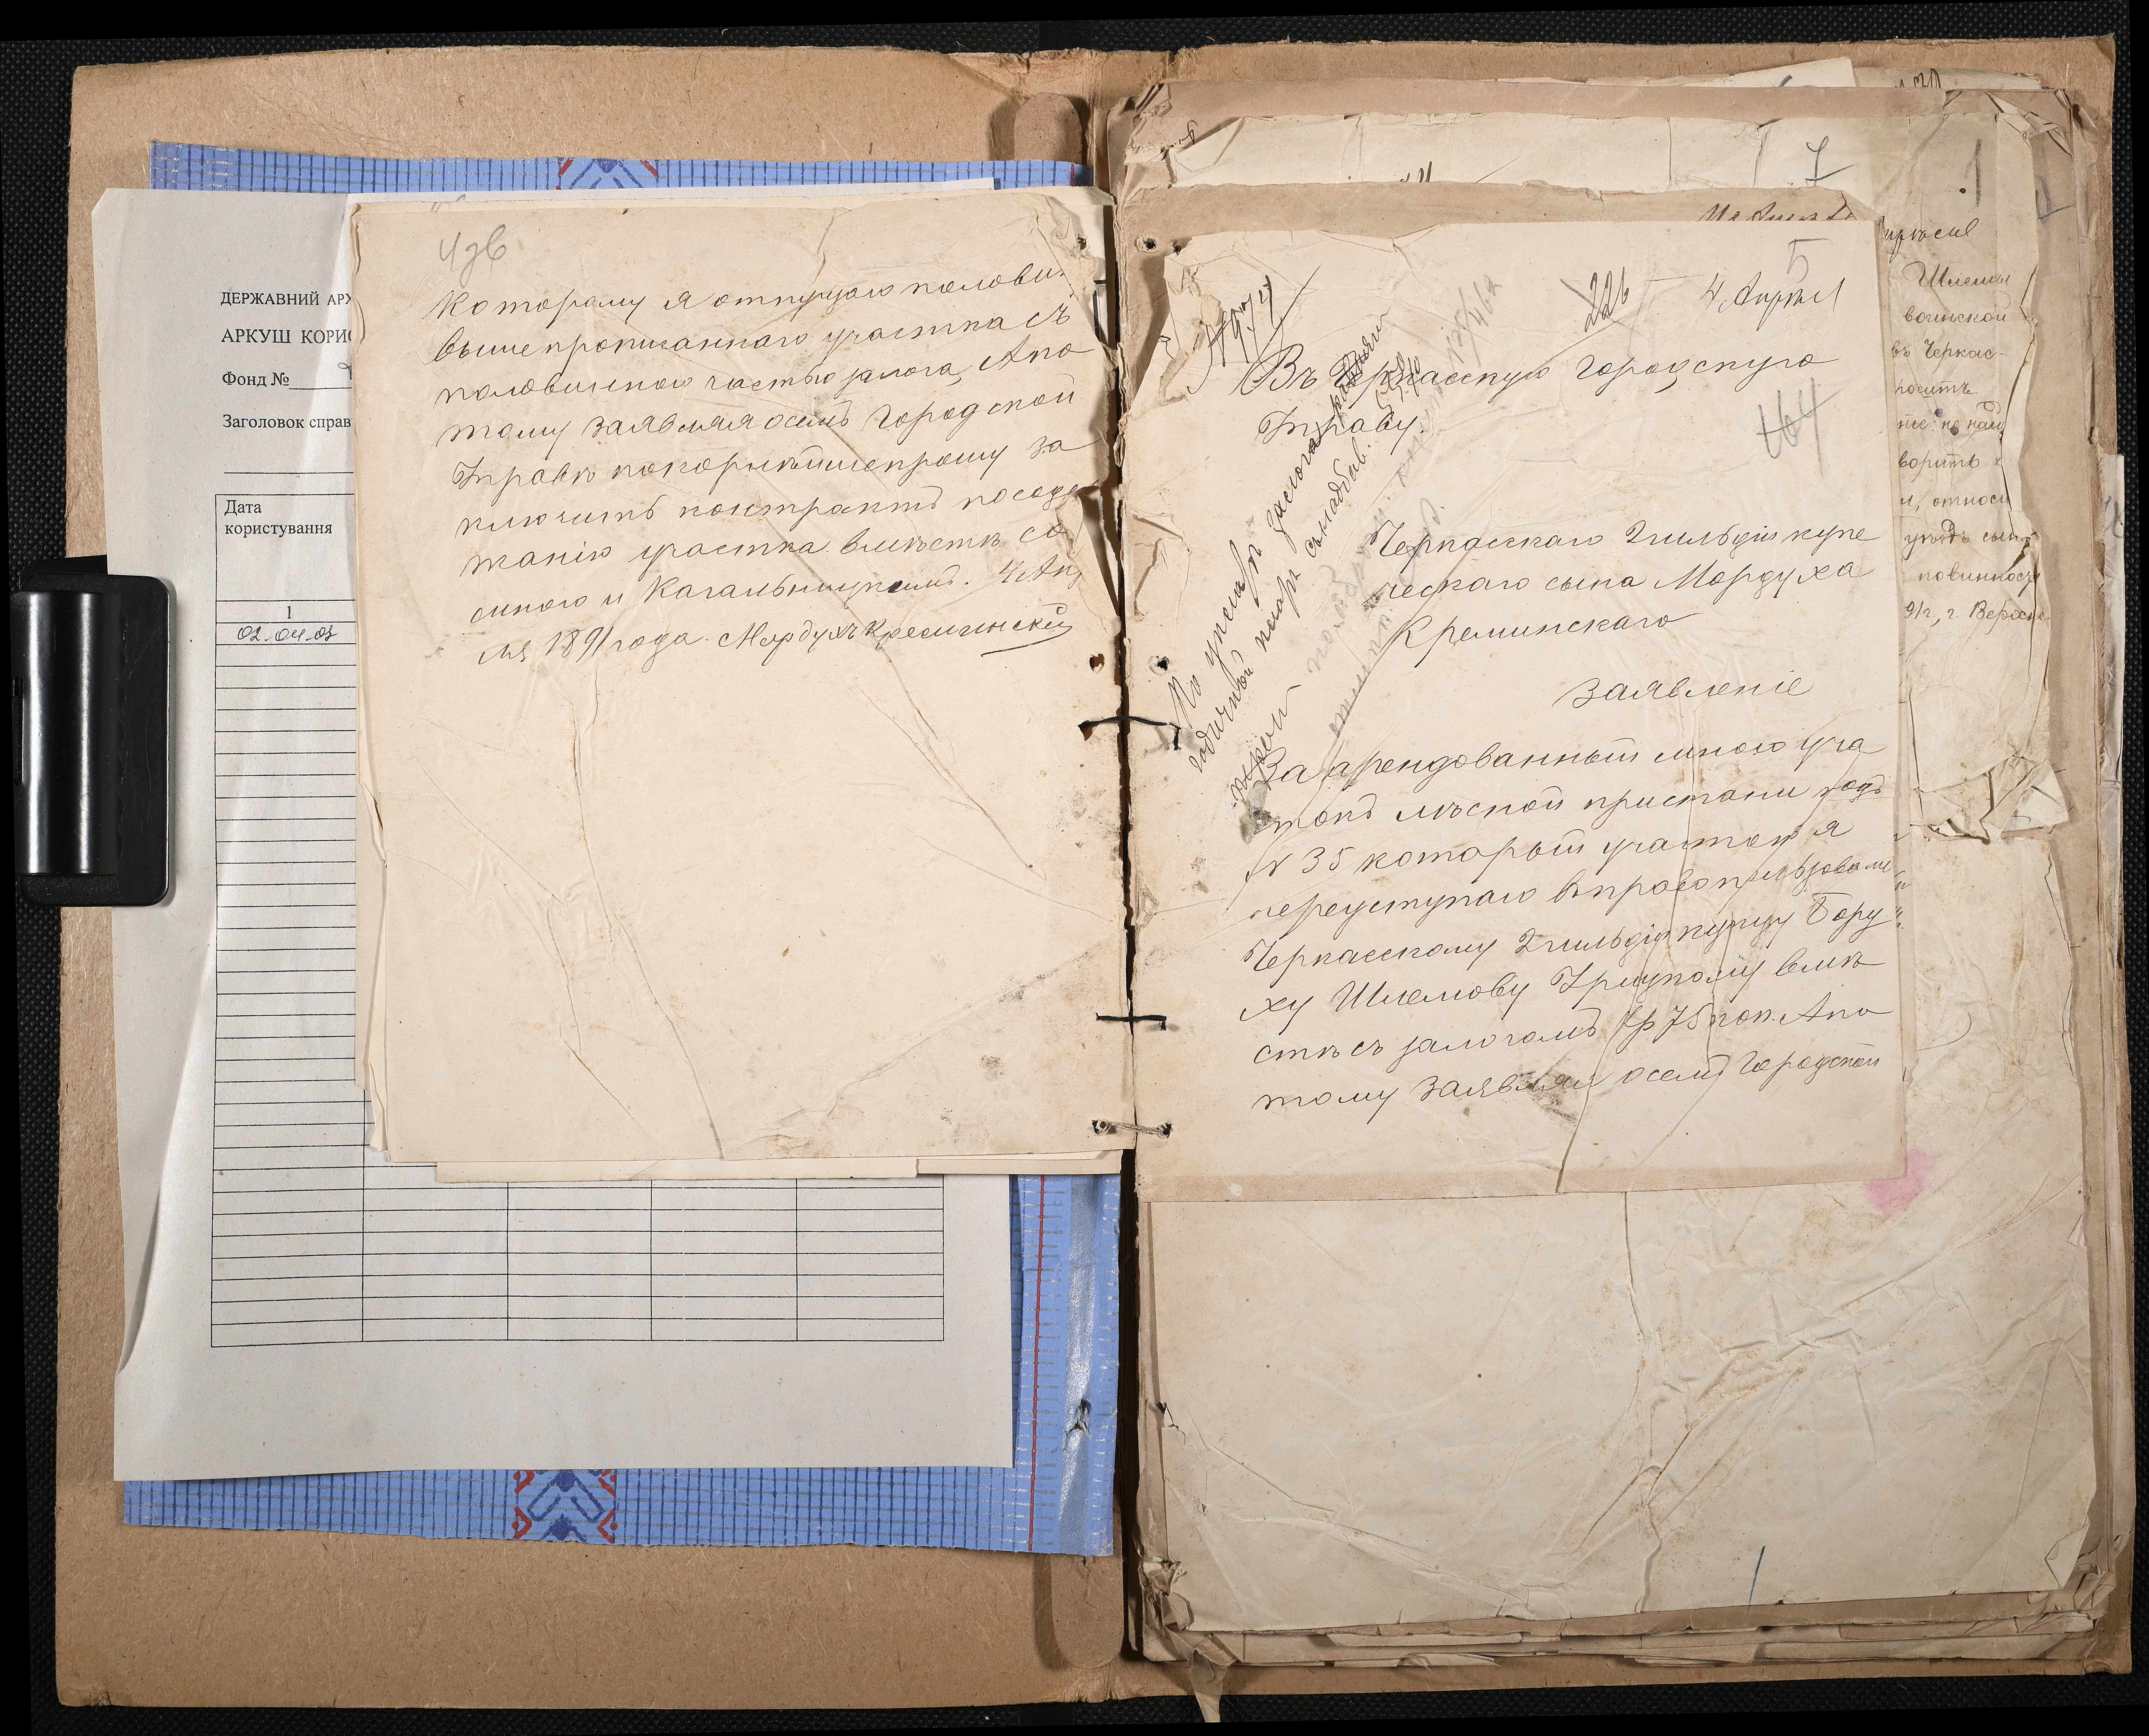 ДЕРЖАВНИЙ АРХ
АРКУШ КОРИС
Фонд №
Заголовок справ
Дата
користування
1
02.04.03
4зв
которому я отпущаю полови-
вышепрописаннаго участка съ
половинною частью залога, Апо
тому заявляя осемъ Городской
Управѣ покорнѣйше прошу за
ключить контрактъ по содер
жанію участка вмѣстѣ со
мною и Кагальницкимъ. 4 Ап
ля 1891 года. Мордухъ Кременскій
7
1
5
226
4 Апрѣля
Въ Черкасскую Городскую
Управу.
464
Черкасскаго 2 гильдіи купе
ческаго сына Мордуха
Креминскаго
Заявленіе
Заарендованный мною уча
токъ лѣсной пристани подъ
№ 35 который участокъ я
переуступаю въ право пользованія
Черкасскому 2 гильдіи купцу Бору
ху Шлемову Урицкому вмѣ
стѣ съ залогомъ 7р 75 коп. Апо
тому заявляя осемъ Городской
Шлемы
воинской
въ Черкас-
носить
ворить
и, относи
уѣздъ
повинност
91 г, г.